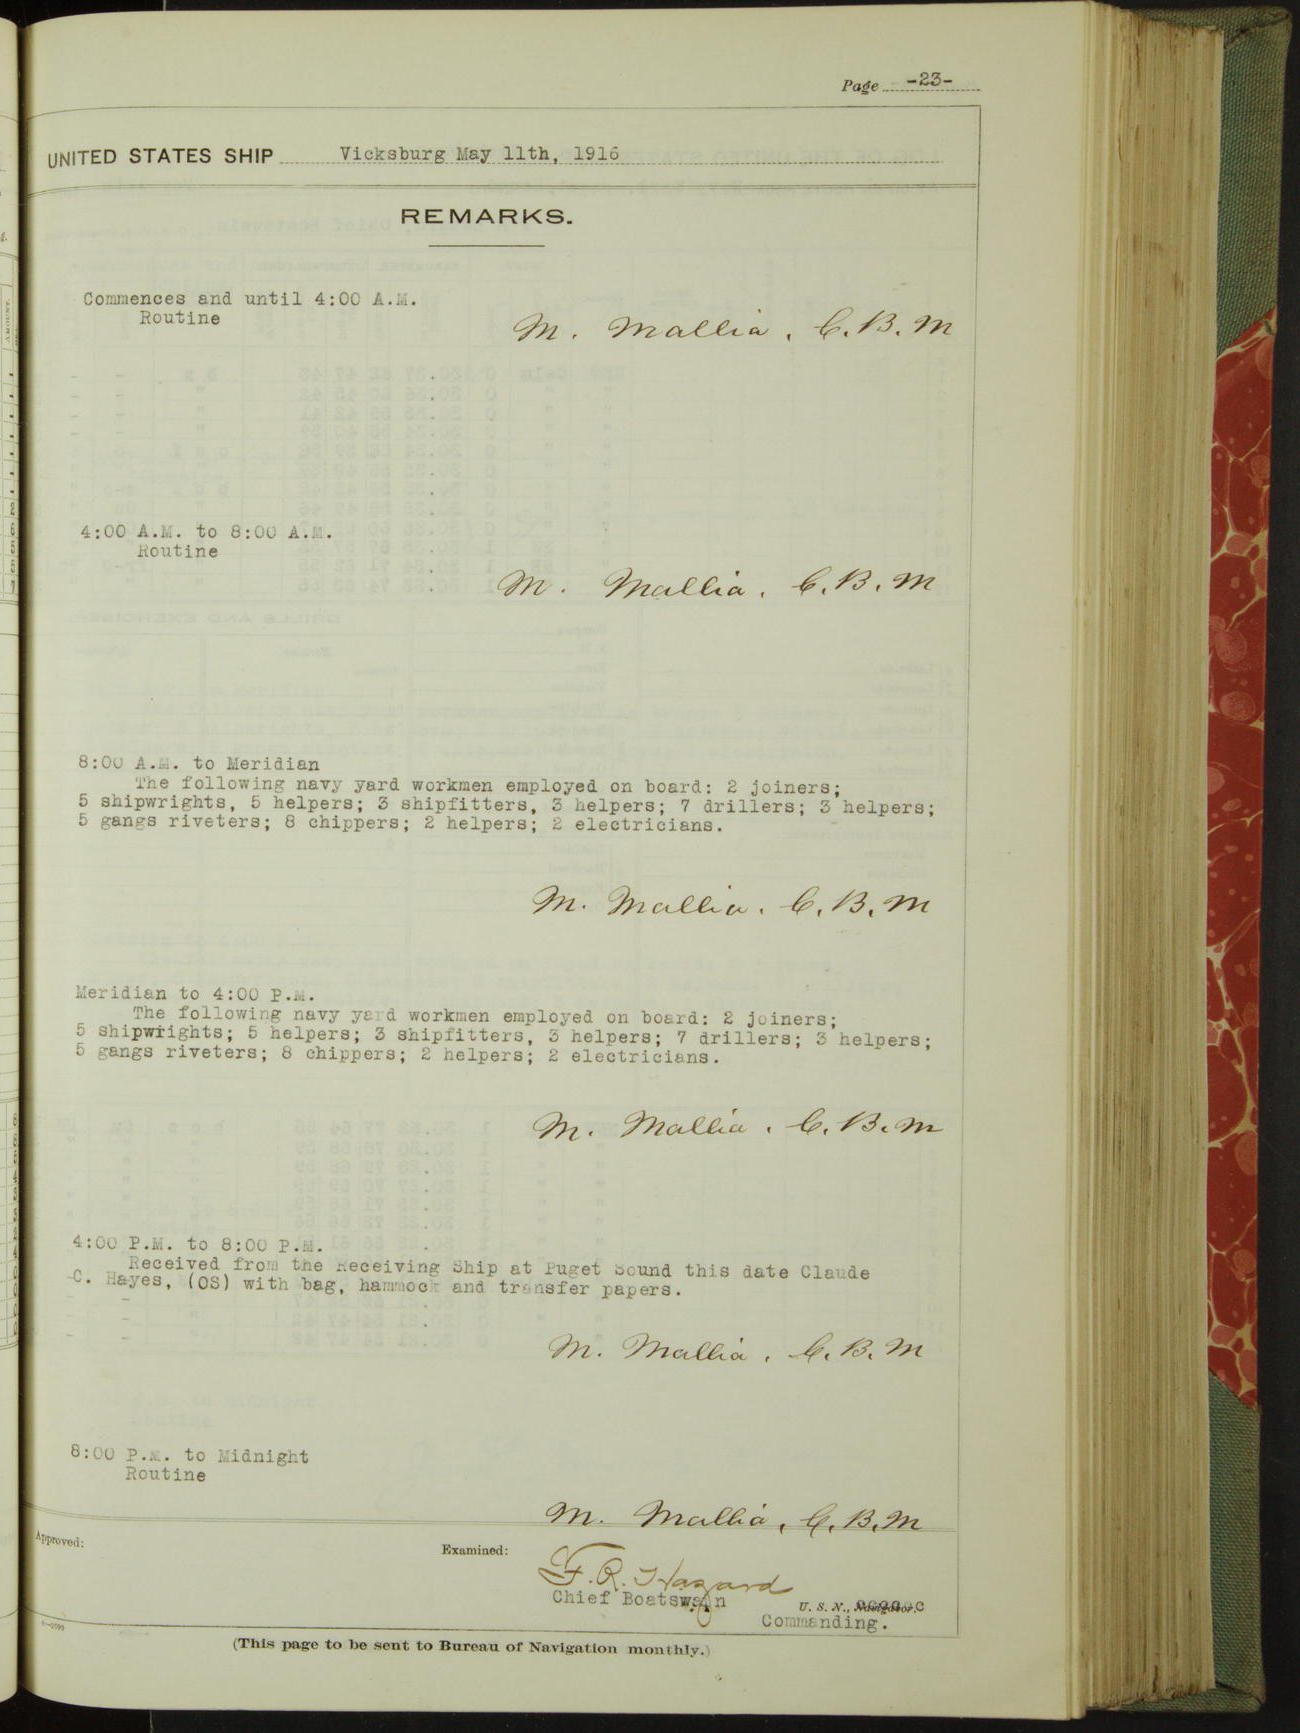 Page -23-
UNITED STATES SHIP Vicksburg May 11th, 1916
REMARKS.
Commences and until 4:00 A.M.
Routine
M. Mallia, C.B.M
4:00 A.M. to 8:00 A.M.
Routine
M. Mallia, C.B.M
8:00 A.M. to Meridian
The following navy yard workmen employed on board: 2 joiners;
5 shipwrights, 5 helpers; 3 shipfitters, 3 helpers; 7 drillers; 3 helpers;
5 gangs riveters; 8 chippers; 2 helpers; 2 electricians.
M. Mallia, C.B.M
Meridian to 4:00 P.M.
The following navy yard workmen employed on board: 2 joiners;
5 shipwrights; 5 helpers; 3 shipfitters, 3 helpers; 7 drillers; 3 helpers;
5 gangs riveters; 8 chippers; 2 helpers; 2 electricians.
M. Mallia, C.B.M
4:00 P.M. to 8:00 P.M.
Received from the Receiving Ship at Puget Sound this date Claude
C. Hayes, (OS) with bag, hammock and transfer papers.
M. Mallia, C.B.M
8:00 P.M. to Midnight
Routine
M. Mallia, C.B.M
Approved:
Examined:
F. R. Hazard
Chief Boatswain
U. S. N., Navigator.
Commanding.
(This page to be sent to Bureau of Navigation monthly.)